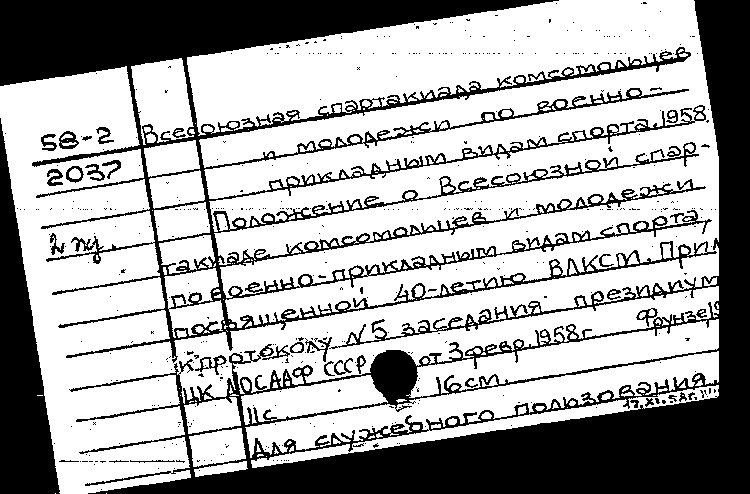 58-2
2037
2 жз.
Всесоюзная спартакиада комсомольцев
и молодежи по военно-
прикладным видам спорта. 1958
Положение о Всесоюзной спар-
такиаде комсомольцев и молодежи
по военно-прикладным видам спорта,
посвященной 40-летию ВЛКСМ. Прил
к протоколу N 5 заседания президиум
ЦК ДОСААФ СССР от 3 февр. 1958 г. Фрунзе, 19
11 с. 16 см.
Для служебного пользования.
17.XI.58 г.